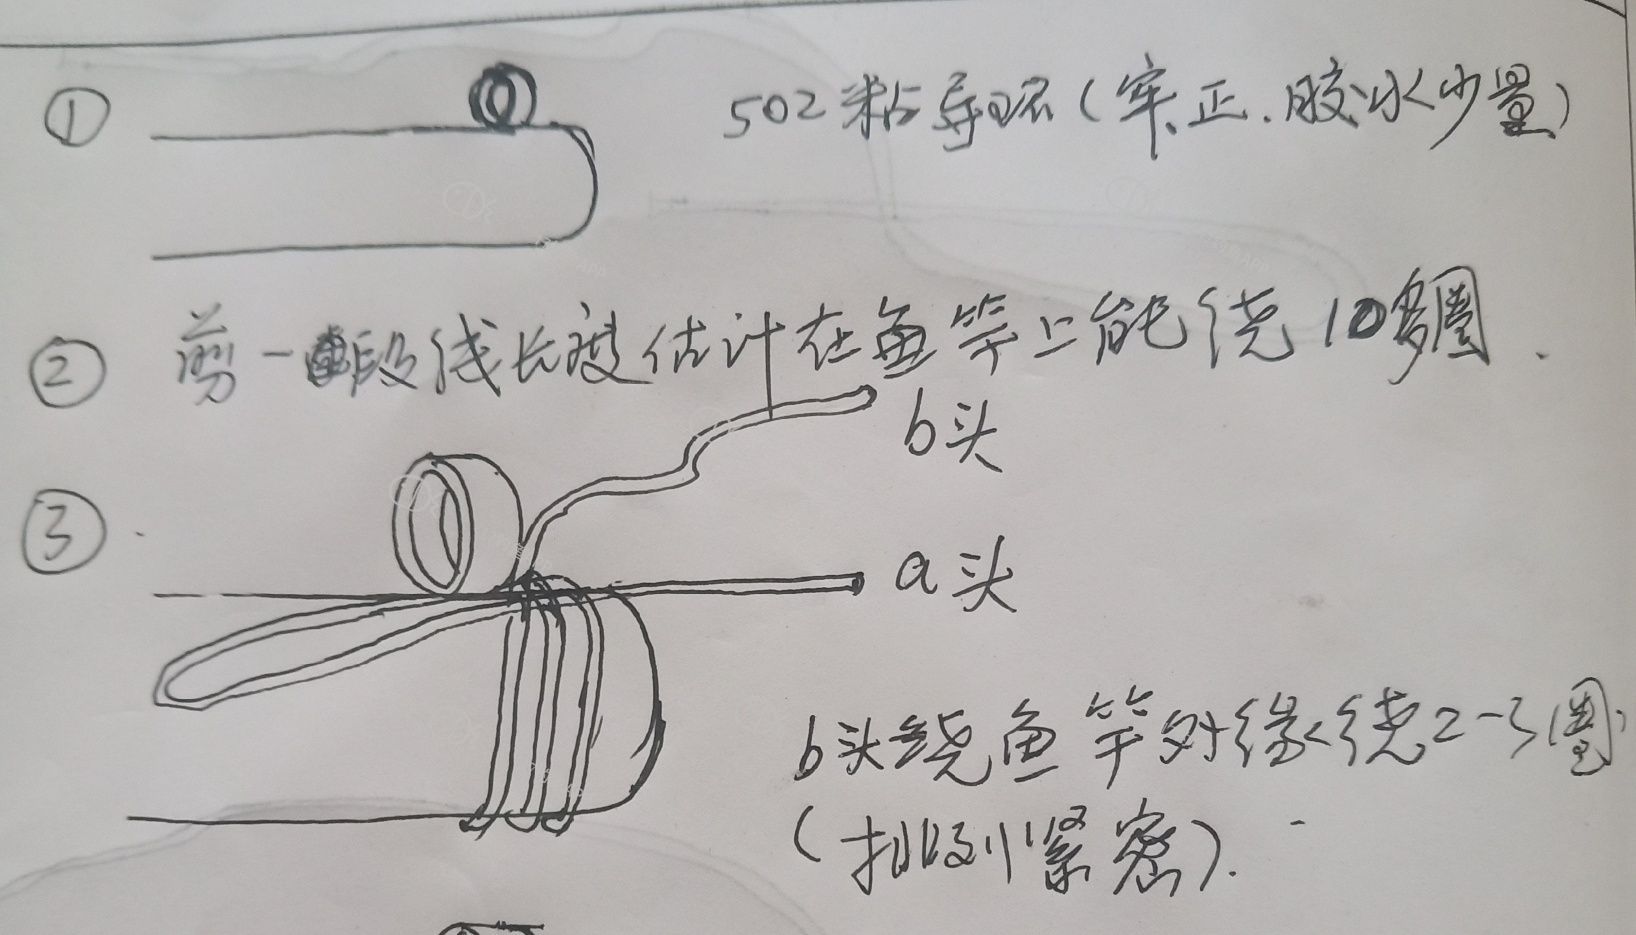 ① 502粘导环(牢、正.胶水少量)
② 剪一段线长度估计在鱼竿上能绕10多圈.
b头
③
a头
b头绕鱼竿外缘绕2-3圈
(排列紧密).